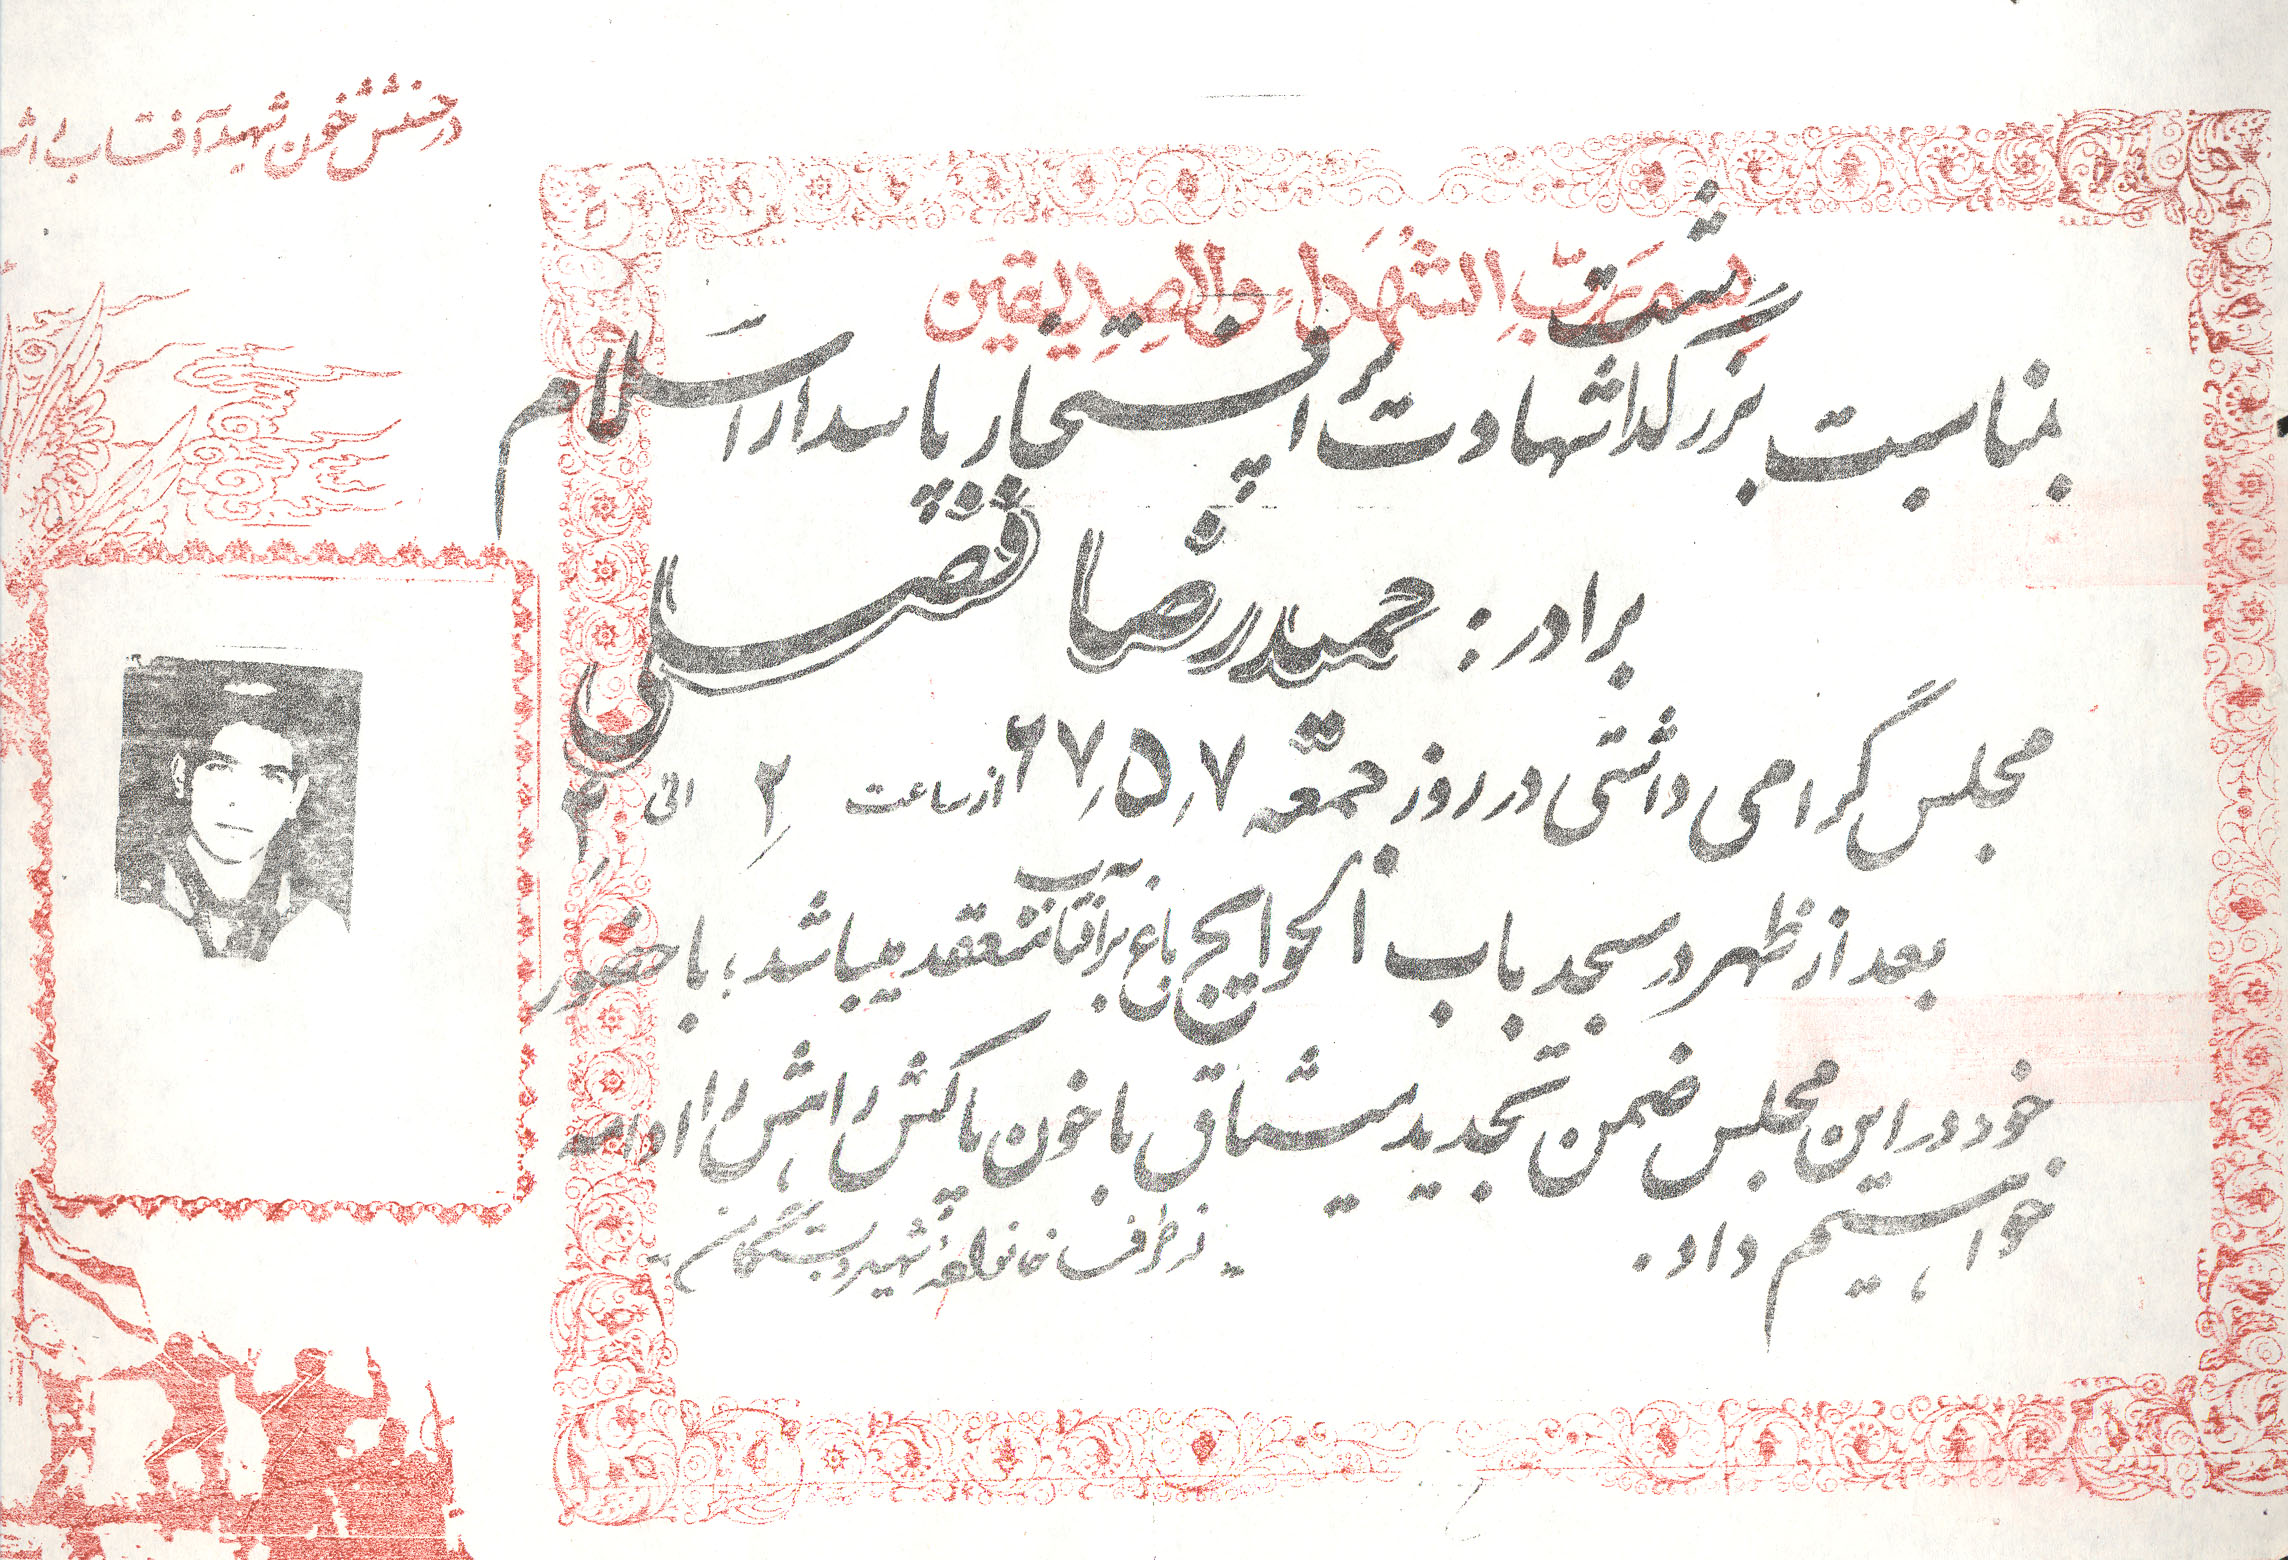 درخشش خون شهید آفتاب را
بسم رَبِّ الشُهَداءِ والصِدِیقین
بمناسبت بزرگداشت شهادت پر افتخار پاسدار اسلام
برادر: حمیدرضا فضلی
مجلس گرامی داشتی در روز جمعه ۶۷٫۵٫۷ از ساعت ۲ الی ۴
بعد از ظهر در مسجد باب الحوایج باغ برآفتاب منعقد میباشد؛ با حضور
خود در این مجلس ضمن تجدید میثاق با خون پاکش راهش را ادامه
خواهیم داد.
از طرف خانواده شهید و بستگان